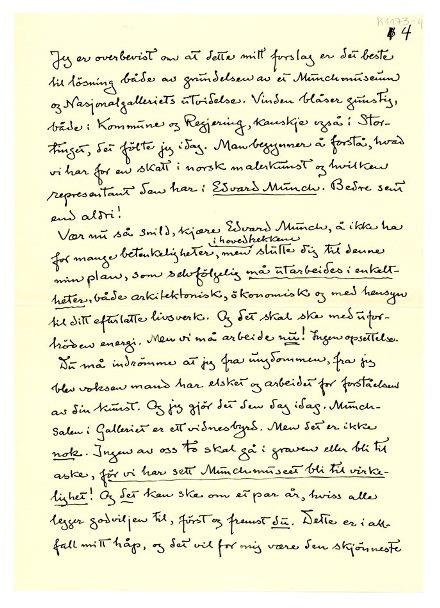 K1173-4
4
Jeg er overbevist om at dette mitt forslag er det beste
til lösning både av grundelsen av et Munchmuseum
og Nasjonalgalleriets utvidelse. Vinden blåser gunstig,
både i Kommune og Regjering, kanskje også i Stor-
tinget, det følte jeg idag. Man begynner å forstå, hvad
vi har for en skatt i norsk malerkunst og hvilken
representant den har i Edvard Munch. Bedre sent
end aldri!
Vær nu så snild, kjære Edvard Munch, å ikke ha
i hovedtrekkene
for mange betenkeligheter, men slutte dig til denne
min plan, som selvfölgelig må utarbeides i enkelt-
heter, både arkitektonisk, ökonomisk og med hensyn
til ditt efterlatte livsverk. Og det skal ske med ufor-
tröden energi. Men vi må arbeide nu! Ingen opsettelse.
Du må indrömme at jeg fra ungdommen, fra jeg
blev voksen mand har elsket og arbeidet for forståelsen
av din kunst. Og jeg gjör det den dag idag. Munch-
salen i Galleriet er ett vidnesbyrd. Men det er ikke
nok. Ingen av oss to skal gå i graven eller bli til
aske, för vi har sett Munchmuseet bli til virke-
lighet! Og det kan ske om et par år, hviss alle
legger godviljen til, först og fremst du. Dette er i all-
fall mitt håp, og det vil for mig være den skjönneste